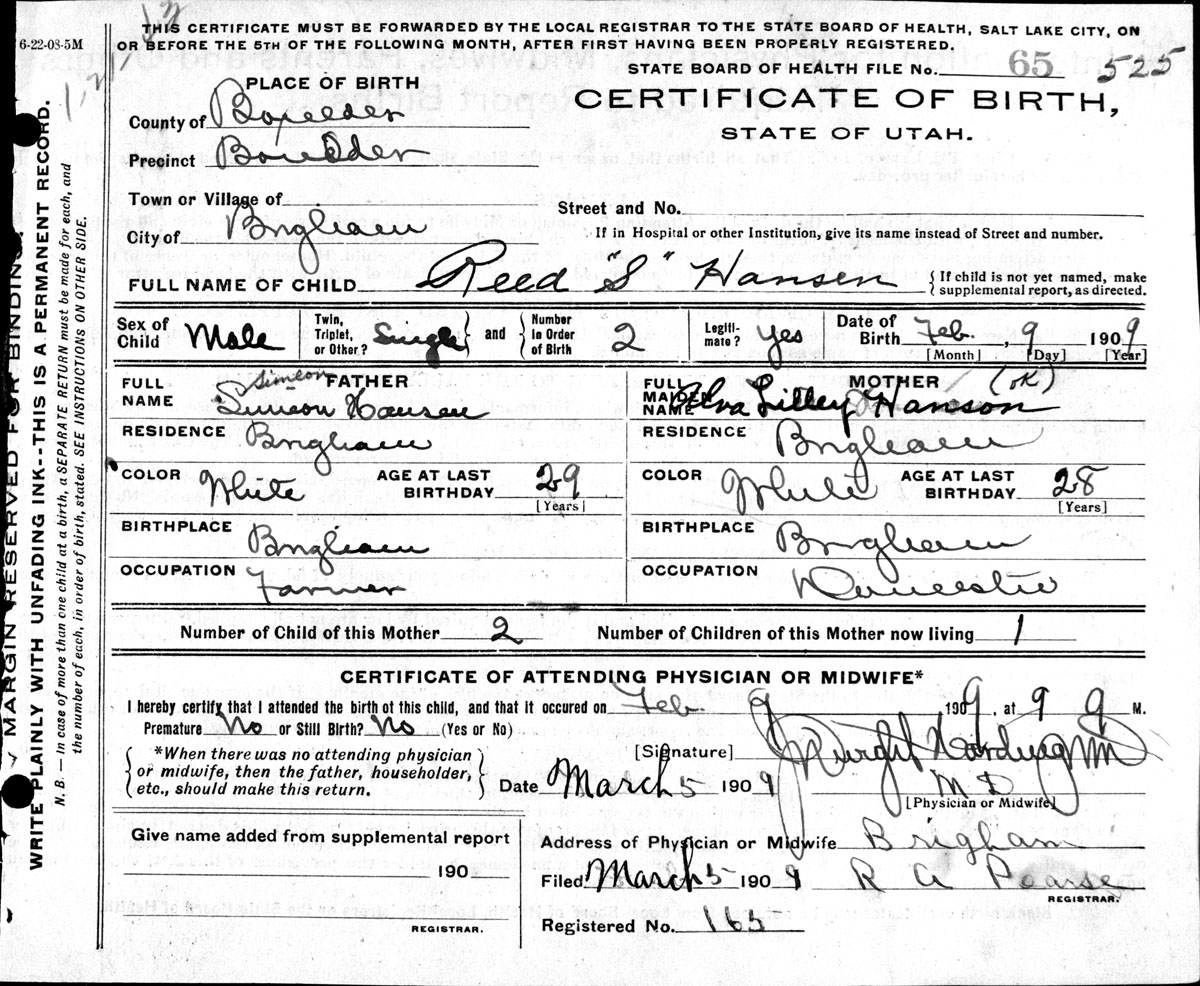 THIS CERTIFICATE MUST BE FORWARDED BY THE LOCAL REGISTRAR TO THE STATE BOARD OF HEALTH, SALT LAKE CITY, ON
6-22-08-5M
OR BEFORE THE 5TH OF THE FOLLOWING MONTH, AFTER FIRST HAVING BEEN PROPERLY REGISTERED.
STATE BOARD OF HEALTH FILE No. 65 525
PLACE OF BIRTH
CERTIFICATE OF BIRTH,
STATE OF UTAH.
County of Boxelder
Precinct Boxelder
Town or Village of
Street and No.
City of Brigham
If in Hospital or other Institution, give its name instead of Street and number.
FULL NAME OF CHILD Reed "S" Hansen {If child is not yet named, make supplemental report, as directed.
Sex of Child Male Twin, Triplet, or Other? Single and Number in Order of Birth 2 Legiti-mate? Yes Date of Birth Feb. , 9 1909
[Month] [Day] [Year]
FULL NAME FATHER Simeon
Simeon Hansen
FULL MAIDEN NAME MOTHER (OK)
Alva Lilley Hanson
RESIDENCE Brigham
RESIDENCE Brigham
COLOR White AGE AT LAST BIRTHDAY 29 [Years]
COLOR White AGE AT LAST BIRTHDAY 28 [Years]
BIRTHPLACE Brigham
BIRTHPLACE Brigham
OCCUPATION Farmer
OCCUPATION Domestic
Number of Child of this Mother 2 Number of Children of this Mother now living 1
CERTIFICATE OF ATTENDING PHYSICIAN OR MIDWIFE*
I hereby certify that I attended the birth of this child, and that it occured on Feb. 9 1909, at 9 M.
Premature No or Still Birth? No (Yes or No)
*When there was no attending physician or midwife, then the father, householder, etc., should make this return.
[Signature] Harding
M D
Date March 5 1909
[Physician or Midwife]
Give name added from supplemental report
190
REGISTRAR.
Address of Physician or Midwife Brigham
Filed March 5 1909 R A Pearse
REGISTRAR.
Registered No. 165
MARGIN RESERVED FOR BINDING.
WRITE PLAINLY WITH UNFADING INK--THIS IS A PERMANENT RECORD.
N. B. — In case of more than one child at a birth, a SEPARATE RETURN must be made for each, and
the number of each, in order of birth, stated. SEE INSTRUCTIONS ON OTHER SIDE.